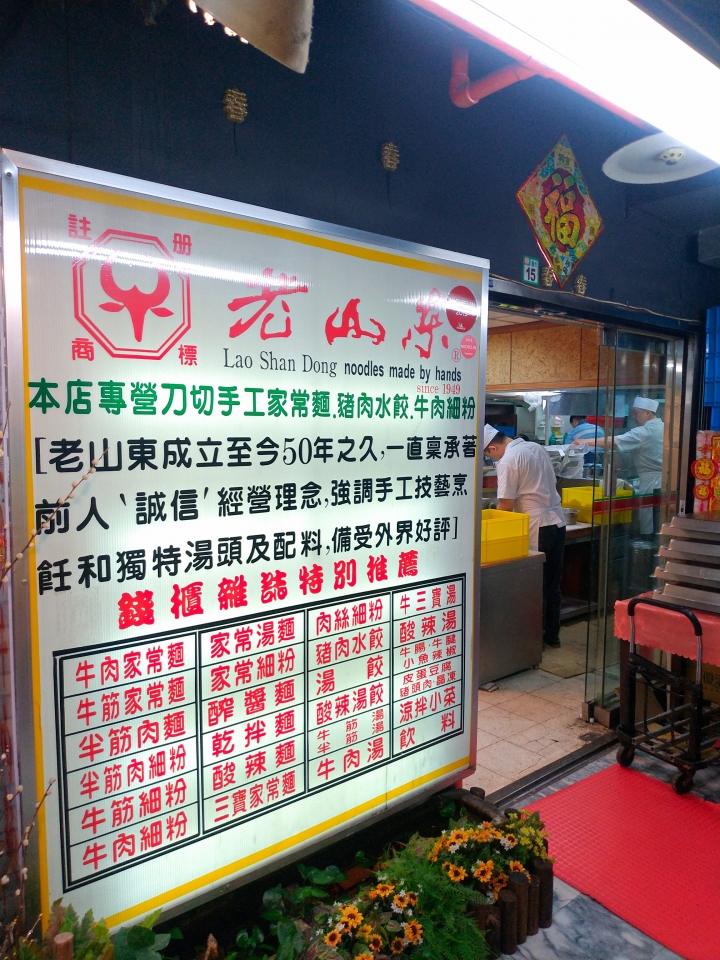 春
春
福
15
春
春
註册
商標
老山东®
Lao Shan Dong noodles made by hands
since 1949
本店專營刀切手工家常麵.豬肉水餃.牛肉細粉
[老山東成立至今50年之久,一直稟承著
前人‵誠信′經營理念,強調手工技藝烹
飪和獨特湯頭及配料,備受外界好評]
錢櫃雜誌特別推薦
牛肉家常麵
牛筋家常麵
半筋肉麵
半筋肉細粉
牛筋細粉
牛肉細粉
家常湯麵
家常細粉
醡醬麵
乾拌麵
酸辣麵
三寶家常麵
肉絲細粉
豬肉水餃
湯餃
酸辣湯餃
牛筋湯
半筋湯
牛肉湯
牛三寶湯
酸辣湯
牛腸·牛腱
小魚辣椒
皮蛋豆腐
豬頭肉·晶凍
涼拌小菜
飲料